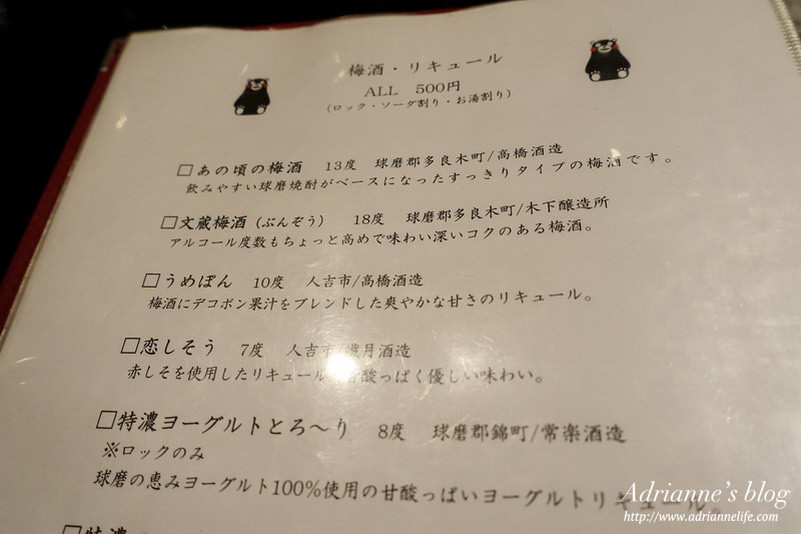 梅酒・リキュール
ALL 500円
(ロック・ソーダ割り・お湯割り)
□あの頃の梅酒 13度 球磨郡多良木町/高橋酒造
飲みやすい球磨焼酎がベースになったすっきりタイプの梅酒です。
□文蔵梅酒(ぶんぞう) 18度 球磨郡多良木町/木下醸造所
アルコール度数もちょっと高めで味わい深いコクのある梅酒。
□うめぽん 10度 人吉市/高橋酒造
梅酒にデコポン果汁をブレンドした爽やかな甘さのリキュール。
□恋しそう 7度 人吉市/繊月酒造
赤しそを使用したリキュール 甘酸っぱく優しい味わい。
□特濃ヨーグルトとろ〜り 8度 球磨郡錦町/常楽酒造
※ロックのみ
球磨の恵みヨーグルト100%使用の甘酸っぱいヨーグルトリキュール。
□特濃
Adrianne's blog
http://www.adriannelife.com/